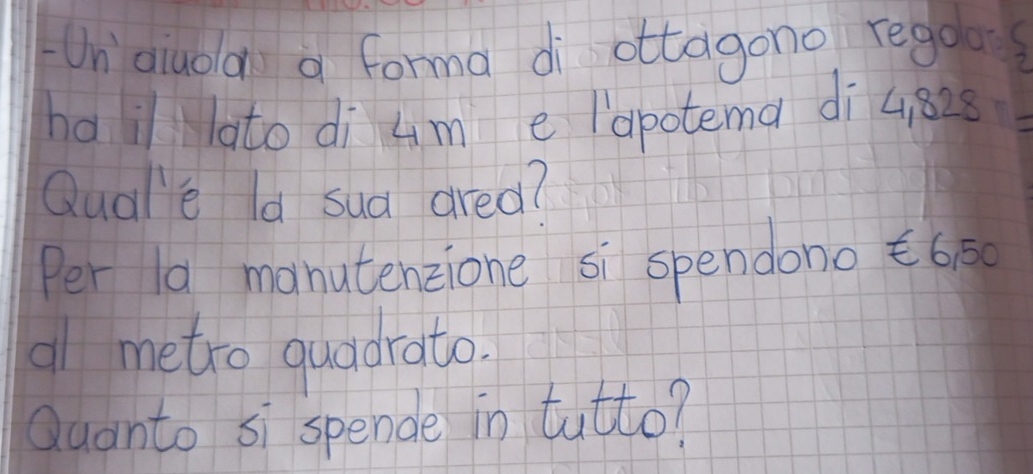 -Un'aiuola a forma di ottagono regolare
ha il lato di 4m e l'apotema di 4,828 m
Qual'è la sua area?
Per la manutenzione si spendono € 6,50
al metro quadrato.
Quanto si spende in tutto?